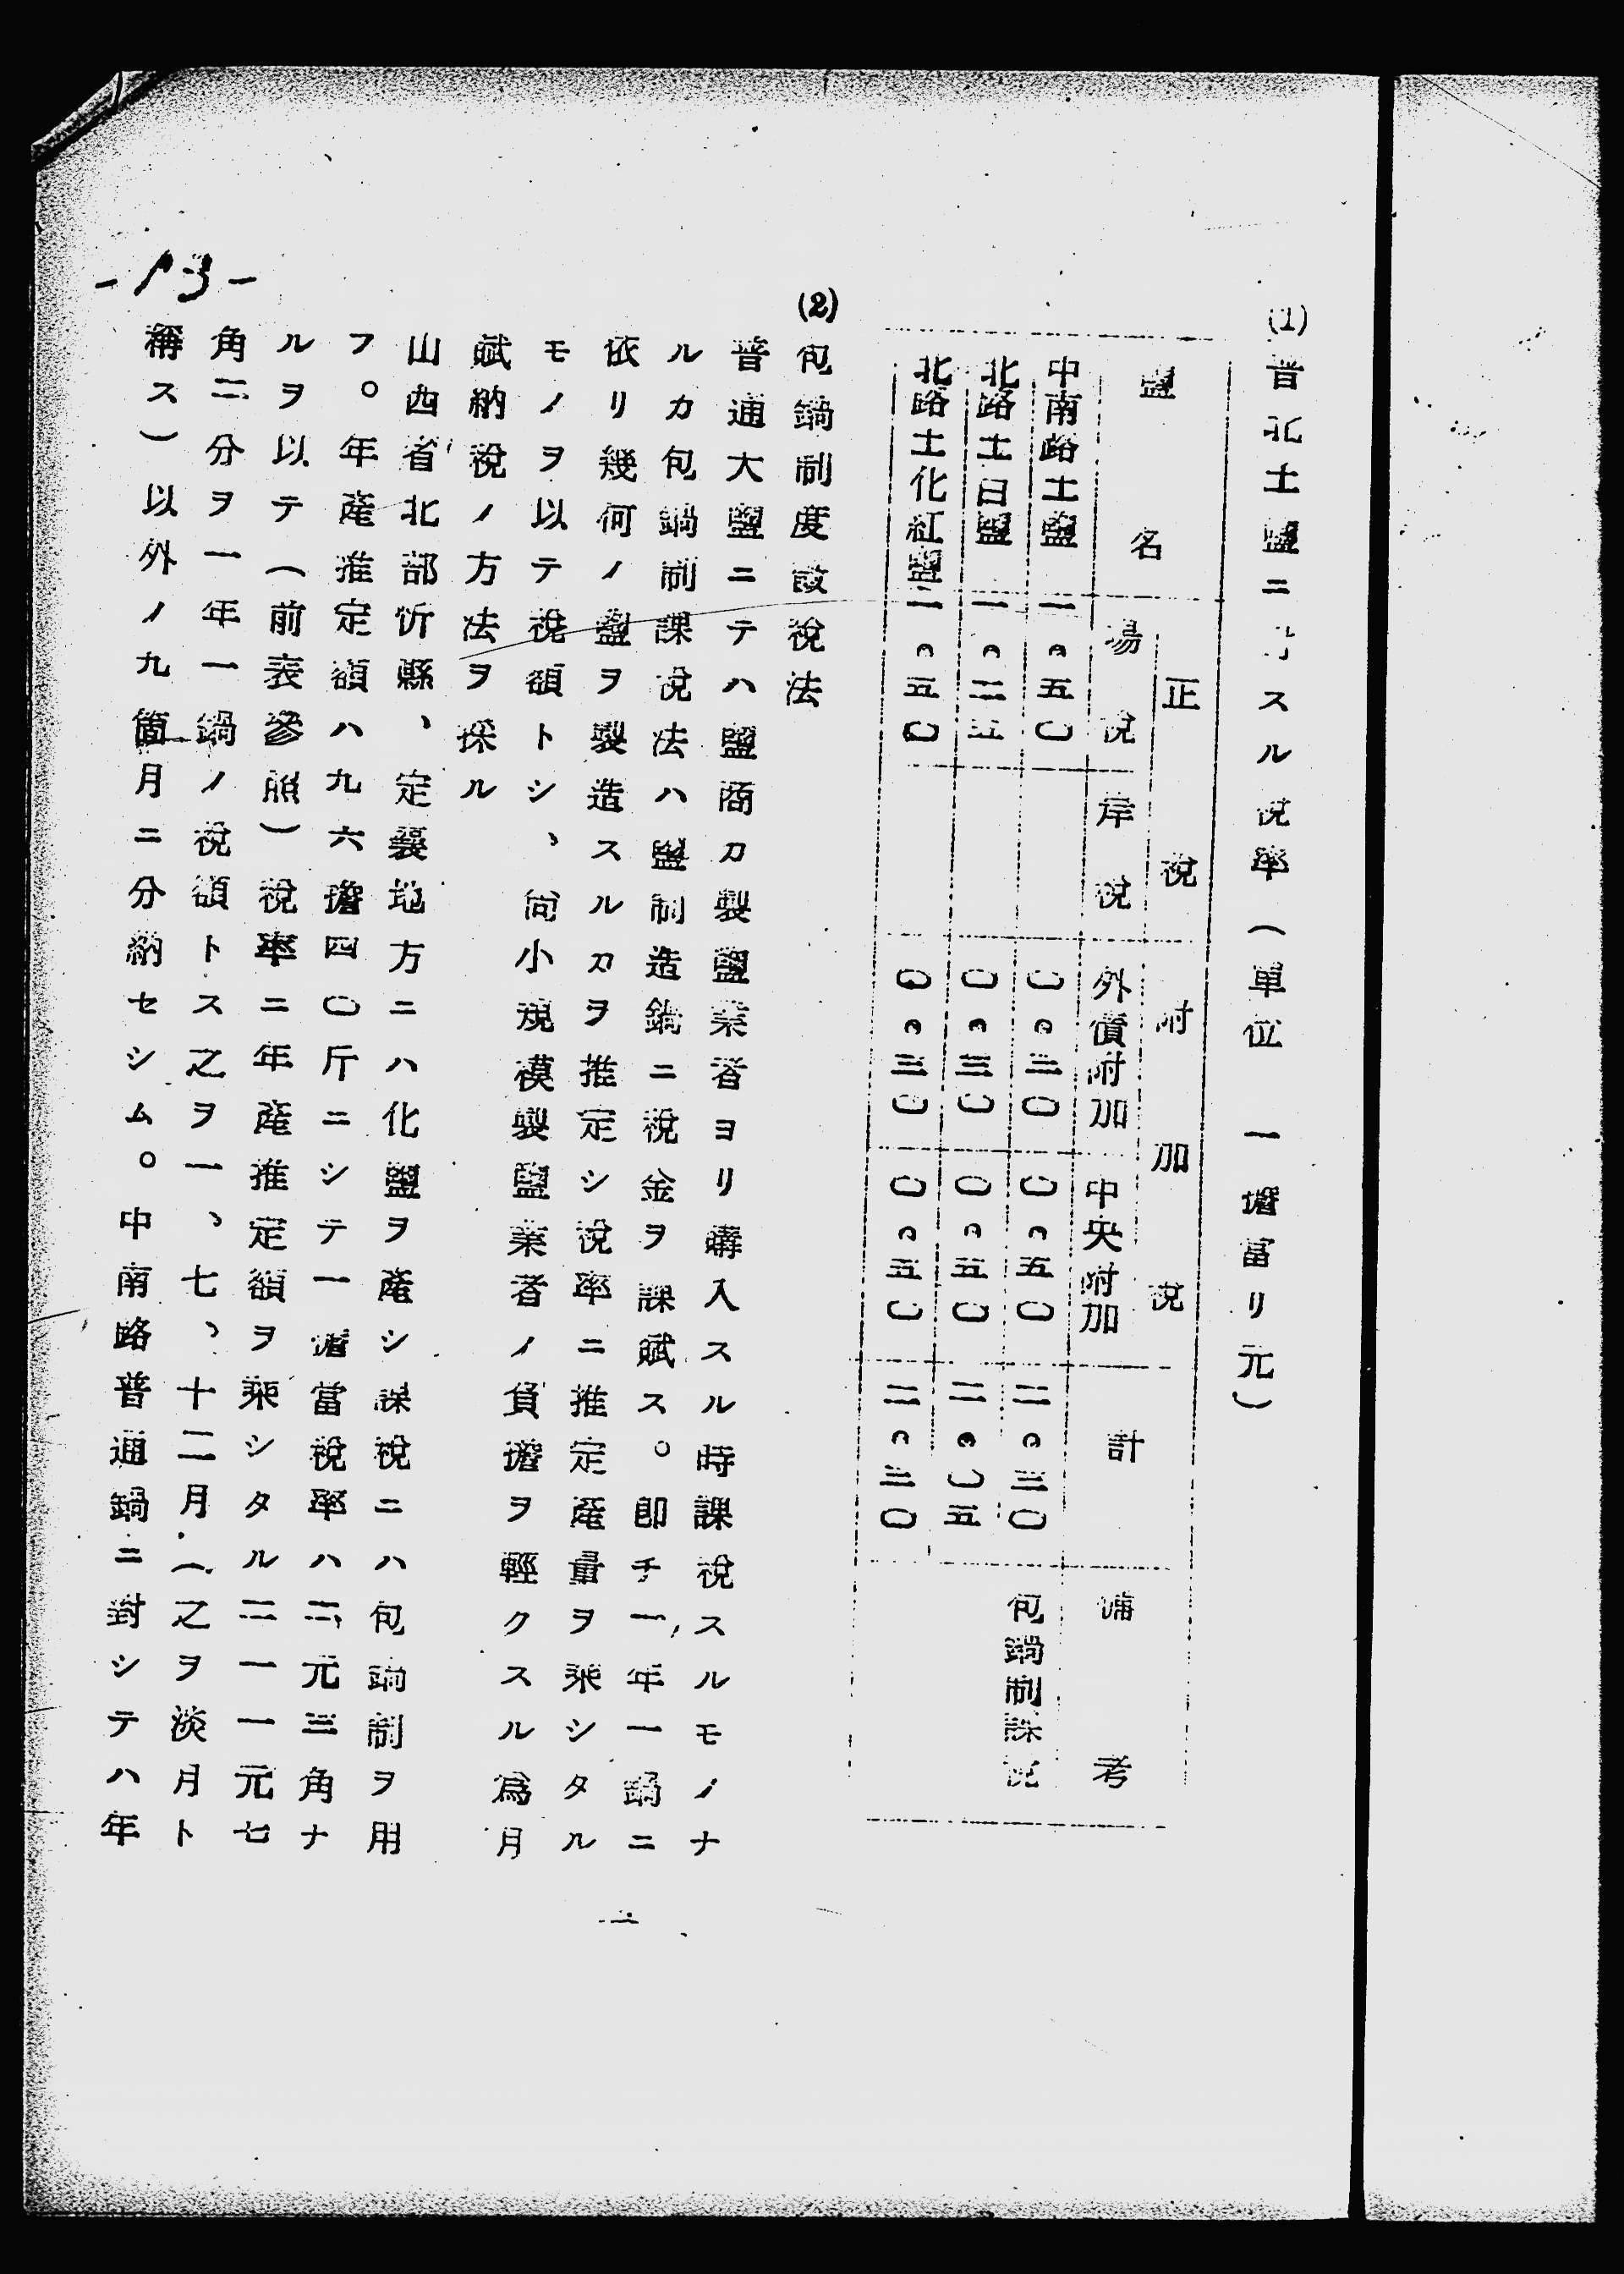 (1)晋北土鹽ニ対スル税率(單位 一擔當リ元)
鹽名
正税
場税
岸税
附加税
外債附加
中央附加
計
備考
中南路土鹽 一.五〇 〇.三〇 〇.五〇 二.三〇 包鍋制課税
北路土白鹽 一.二五 〇.三〇 〇.五〇 二.〇五
北路土化紅鹽 一.五〇 〇.三〇 〇.五〇 二.三〇
(2)包鍋制度設税法
普通大鹽ニテハ鹽商カ製鹽業者ヨリ購入スル時課税スルモノナ
ルカ包鍋制課税法ハ鹽制造鍋ニ税金ヲ課賦ス。即チ一年一鍋ニ
依リ幾何ノ鹽ヲ製造スルカヲ推定シ税率ニ推定産量ヲ乘シタル
モノヲ以テ税額トシ、尙小規模製鹽業者ノ負擔ヲ輕クスル爲月
賦納税ノ方法ヲ採ル
山西省北部忻縣、定襄地方ニハ化鹽ヲ産シ課税ニハ包鍋制ヲ用
フ。年産推定額ハ九六擔四〇斤ニシテ一擔當税率ハ二元三角ナ
ルヲ以テ(前表參照)税率ニ年産推定額ヲ乘シタル二二一元七
角二分ヲ一年一鍋ノ税額トス之ヲ一、七、十二月(之ヲ淡月ト
稱ス)以外ノ九箇月ニ分納セシム。中南路普通鍋ニ對シテハ年
-13-